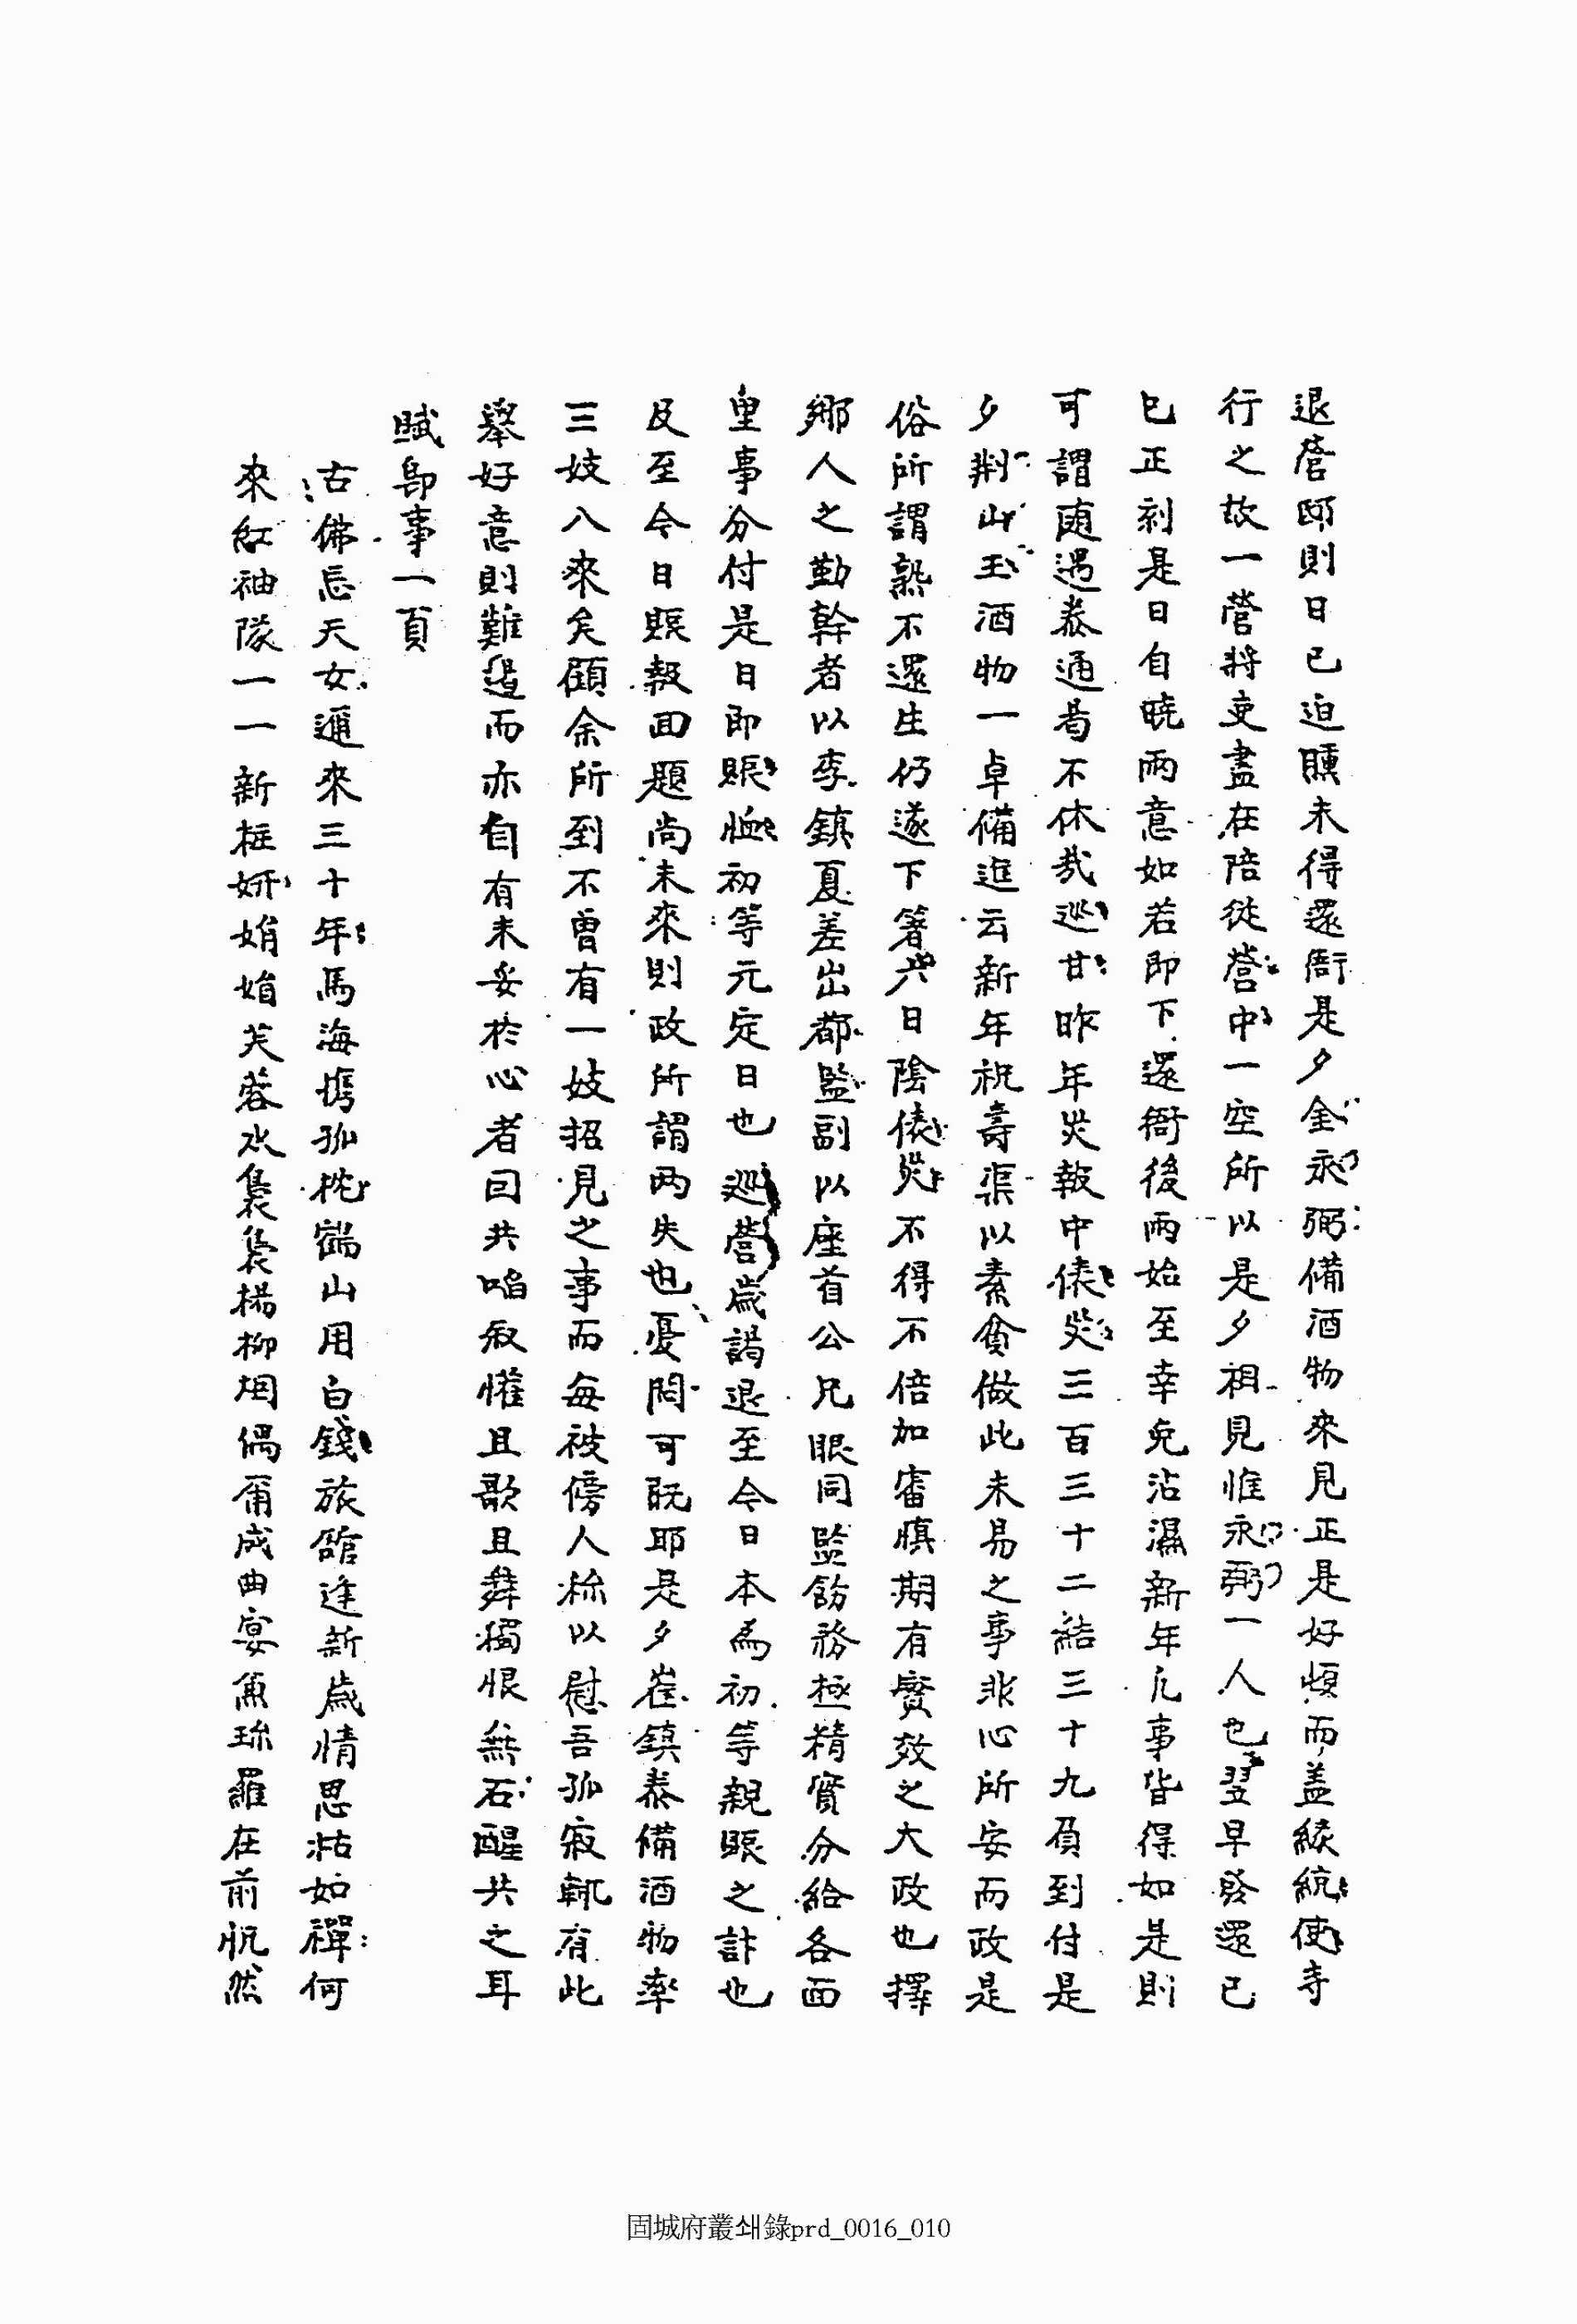 退營卽則日已迫曛未得還衙是夕金永弼備酒物來見正是好煩而盖緣統使寺
行之故一營將吏盡在陪從營中一空所以是夕相見惟永弼一人也翌早發還已
巳正刻是日自曉雨意如若即下還衙後雨始至幸免沾濕新年凡事皆得如是則
可謂随遇泰通者不休哉巡甘昨年災報中俵災三百三十二結三十九負到付是
夕荆山玉酒物一卓備進云新年祝壽渠以素貧做此未易之事非心所安而政是
俗所謂熟不還生仍遂下箸此日陰俵災不得不倍加審愼期有實效之大政也擇
鄕人之勤幹者以李鎭夏差出都監副以座首公兄眼同監飭務極精實分給各面
里事分付是日即賑恤初等元定日也巡營歲謁退至今日本為初等親賑之計也
及至今日賑報回題尚未來則政所謂兩失也憂悶可旣耶是夕崔鎭泰備酒物率
三妓八來矣顧余所到不曾有一妓招見之事而每被傍人秭以慰吾孤寂輒有此
擧好意則難遏而亦自有未妥於心者回共啗叙懽且歌且舞獨恨無石醒共之耳
賦即事一頁
古佛忘天女邇來三十年馬海携孤枕鶴山用白錢旅舘逢新歲情思粘如禪何
來紅袖隊一一新粧姸娟娟芙蓉水裊裊楊柳烟偶爾成曲宴魚珎羅在前怳然
固城府叢쇄錄prd_0016_010